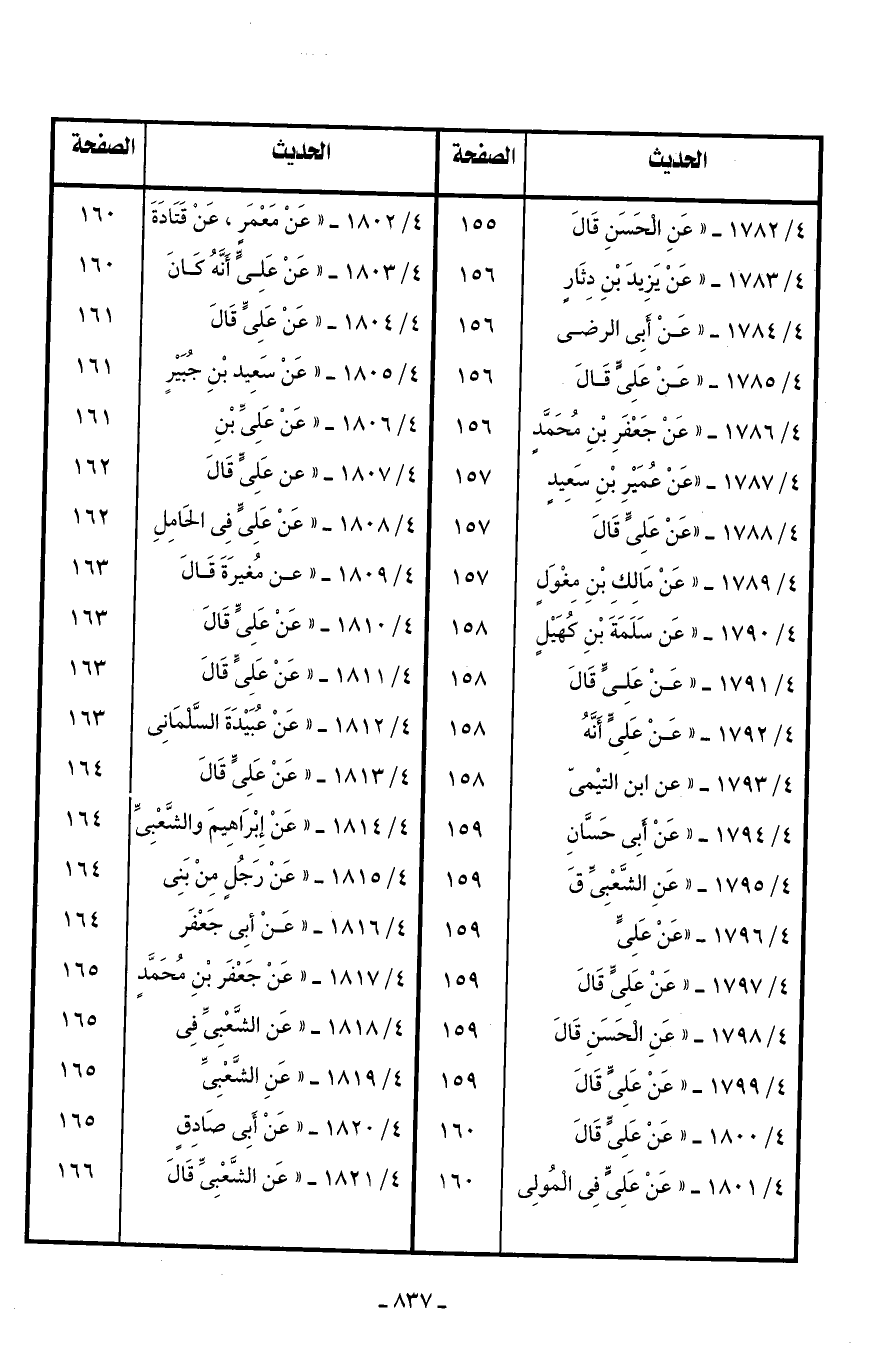 الحديث الصفحة الحديث الصفحة
٤/ ١٧٨٢ ـ « عَنِ الْحَسَنِ قَالَ ١٥٥ ٤/ ١٨٠٢ ـ « عَنْ مَعْمَرٍ ، عَنْ قَتَادَةَ ١٦٠
٤/ ١٧٨٣ ـ « عَنْ يَزِيدَ بْنِ دِثَارٍ ١٥٦ ٤/ ١٨٠٣ ـ « عَنْ عَلِىٍّ أَنَّهُ كَانَ ١٦٠
٤/ ١٧٨٤ ـ « عَنْ أَبِى الرضى ١٥٦ ٤/ ١٨٠٤ ـ « عَنْ عَلِىٍّ قَالَ ١٦١
٤/ ١٧٨٥ ـ « عَنْ عَلِىٍّ قَالَ ١٥٦ ٤/ ١٨٠٥ ـ « عَنْ سَعِيدِ بْنِ جُبَيْرٍ ١٦١
٤/ ١٧٨٦ ـ « عَنْ جَعْفَرِ بْنِ مُحَمَّدٍ ١٥٦ ٤/ ١٨٠٦ ـ « عَنْ عَلِىِّ بْنِ ١٦١
٤/ ١٧٨٧ ـ «عَنْ عُمَيْرِ بْنِ سَعِيدٍ ١٥٧ ٤/ ١٨٠٧ ـ « عن عَلِىٍّ قَالَ ١٦٢
٤/ ١٧٨٨ ـ «عَنْ عَلِىٍّ قَالَ ١٥٧ ٤/ ١٨٠٨ ـ « عَنْ عَلِىٍّ فِى الحَامِلِ ١٦٢
٤/ ١٧٨٩ ـ « عَنْ مَالِكِ بْنِ مِغْوَلٍ ١٥٧ ٤/ ١٨٠٩ ـ « عن مُغِيرَةَ قَالَ ١٦٣
٤/ ١٧٩٠ ـ « عَن سَلَمَةَ بْنِ كُهَيْلٍ ١٥٨ ٤/ ١٨١٠ ـ « عَنْ عَلِىٍّ قَالَ ١٦٣
٤/ ١٧٩١ ـ « عَنْ عَلِىٍّ قَالَ ١٥٨ ٤/ ١٨١١ ـ « عَنْ عَلِىٍّ قَالَ ١٦٣
٤/ ١٧٩٢ ـ « عَنْ عَلِىٍّ أَنَّهُ ١٥٨ ٤/ ١٨١٢ ـ « عَنْ عُبَيْدَةَ السَّلْمَانِى ١٦٣
٤/ ١٧٩٣ ـ « عن ابن التيْمىّ ١٥٨ ٤/ ١٨١٣ ـ « عَنْ عَلِىٍّ قَالَ ١٦٤
٤/ ١٧٩٤ ـ « عَنْ أَبِى حَسَّانِ ١٥٩ ٤/ ١٨١٤ ـ « عَنْ إِبْرَاهِيمَ والشَّعْبِىِّ ١٦٤
٤/ ١٧٩٥ ـ « عَنِ الشَّعْبِىِّ قَ ١٥٩ ٤/ ١٨١٥ ـ « عَنْ رَجُلٍ مِنْ بَنِى ١٦٤
٤/ ١٧٩٦ ـ «عَنْ عَلِىٍّ ١٥٩ ٤/ ١٨١٦ ـ « عَنْ أَبِى جَعْفَر ١٦٤
٤/ ١٧٩٧ ـ « عَنْ عَلِىٍّ قَالَ ١٥٩ ٤/ ١٨١٧ ـ « عَنْ جَعْفَرِ بْنِ مُحَمَّدٍ ١٦٥
٤/ ١٧٩٨ ـ « عَنِ الْحَسَنِ قَالَ ١٥٩ ٤/ ١٨١٨ ـ « عَنِ الشَّعْبِىِّ فِى ١٦٥
٤/ ١٧٩٩ ـ « عَنْ عَلِىٍّ قَالَ ١٥٩ ٤/ ١٨١٩ ـ « عَنِ الشَّعْبِىِّ ١٦٥
٤/ ١٨٠٠ ـ « عَنْ عَلِىٍّ قَالَ ١٦٠ ٤/ ١٨٢٠ ـ « عَنْ أَبِى صَادِقٍ ١٦٥
٤/ ١٨٠١ ـ « عَنْ عَلِىٍّ فِى الْمُولِى ١٦٠ ٤/ ١٨٢١ ـ « عَنِ الشَّعْبِىِّ قَالَ ١٦٦
ـ ٨٣٧ ـ